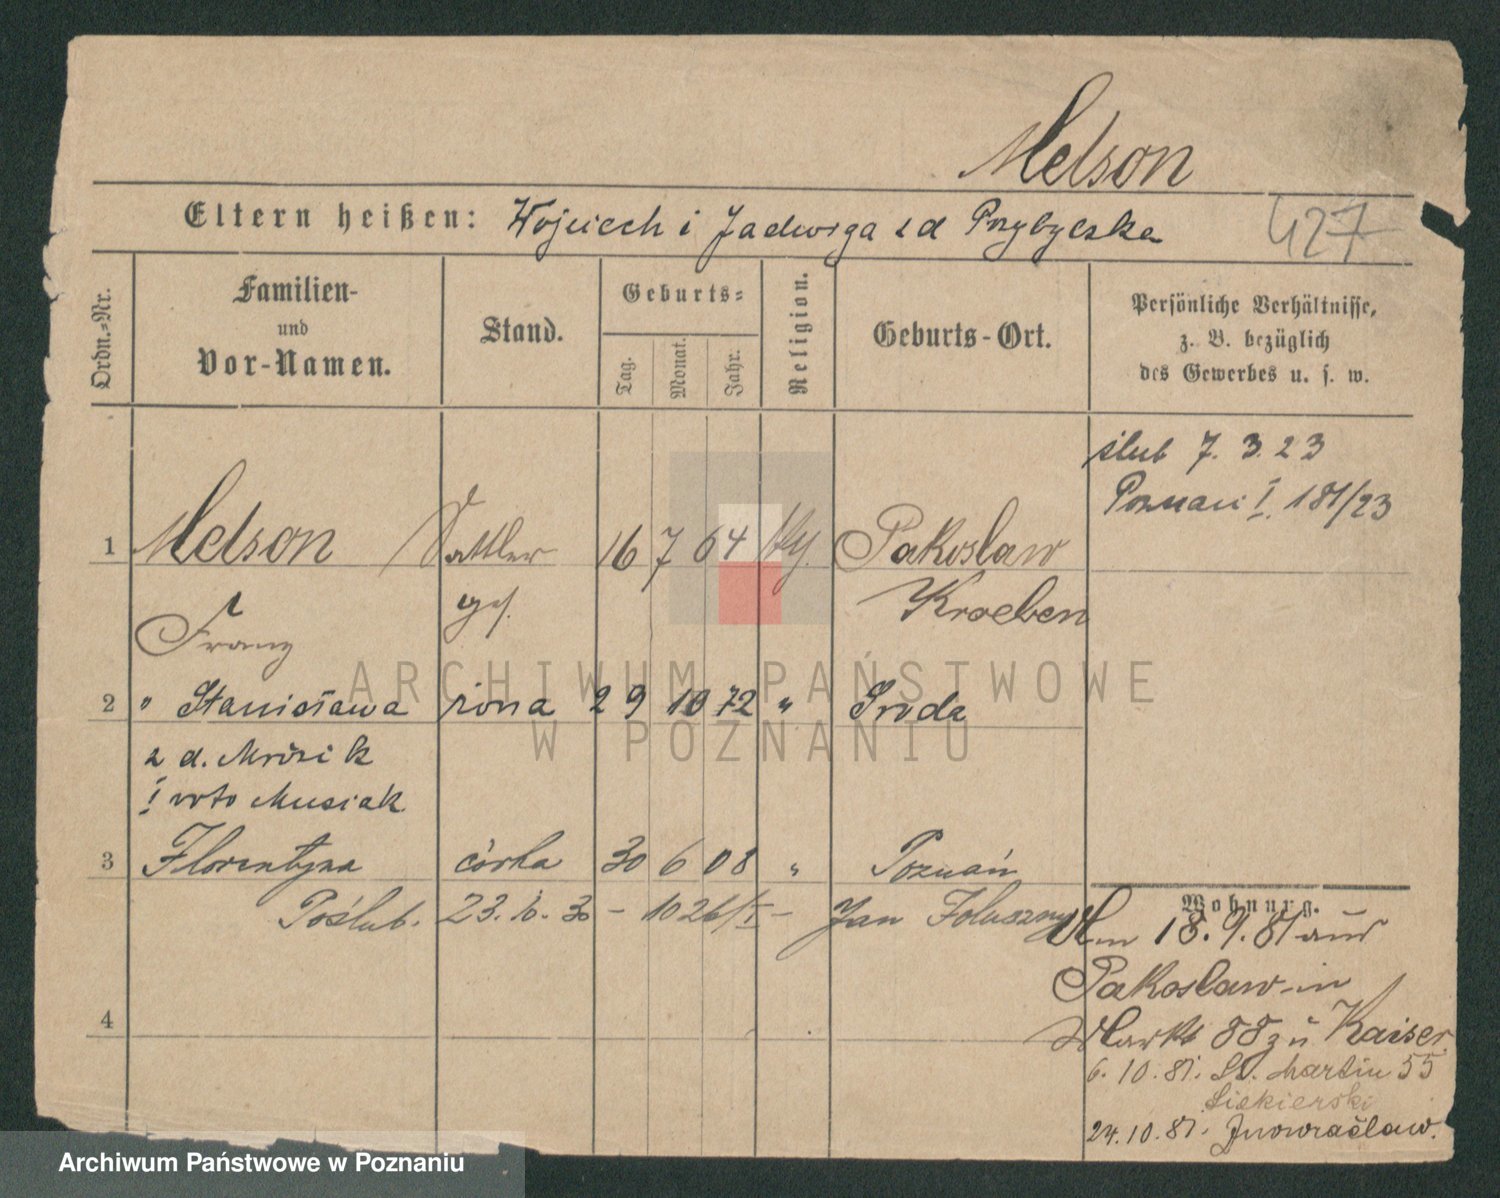 Melson
Eltern heißen: Wojciech i Jadwiga z d Przybylska
427
Ordn.=Nr.
Familien-
und
Vor-Namen.
Stand.
Geburts=
Tag.
Monat.
Jahr.
Religion.
Geburts-Ort.
Persönliche Verhältnisse,
z. B. bezüglich
des Gewerbes u. s. w.
ślub 7. 3. 23
Poznań I. 181/23
1 Melson Sattler 16 7 64 Pakoslaw
ges. Kroeben
Franz
2 " Stanisława żona 29 10 72 " Środa
z d. Mrozik
I voto Musiak
3 Florentyna córka 30 6 08 " Poznań
Poślub. 23. 10. 30 - 1026/II - Jan Foluszny
Wohnung.
Am 18. 9. 81 aus
Pakoslaw in
Markt 88 zu Kaiser
6. 10. 81. St. Martin 55
Siekierski
24. 10. 81. Inowraclaw.
4
ARCHIWUM PAŃSTWOWE
W POZNANIU
Archiwum Państwowe w Poznaniu